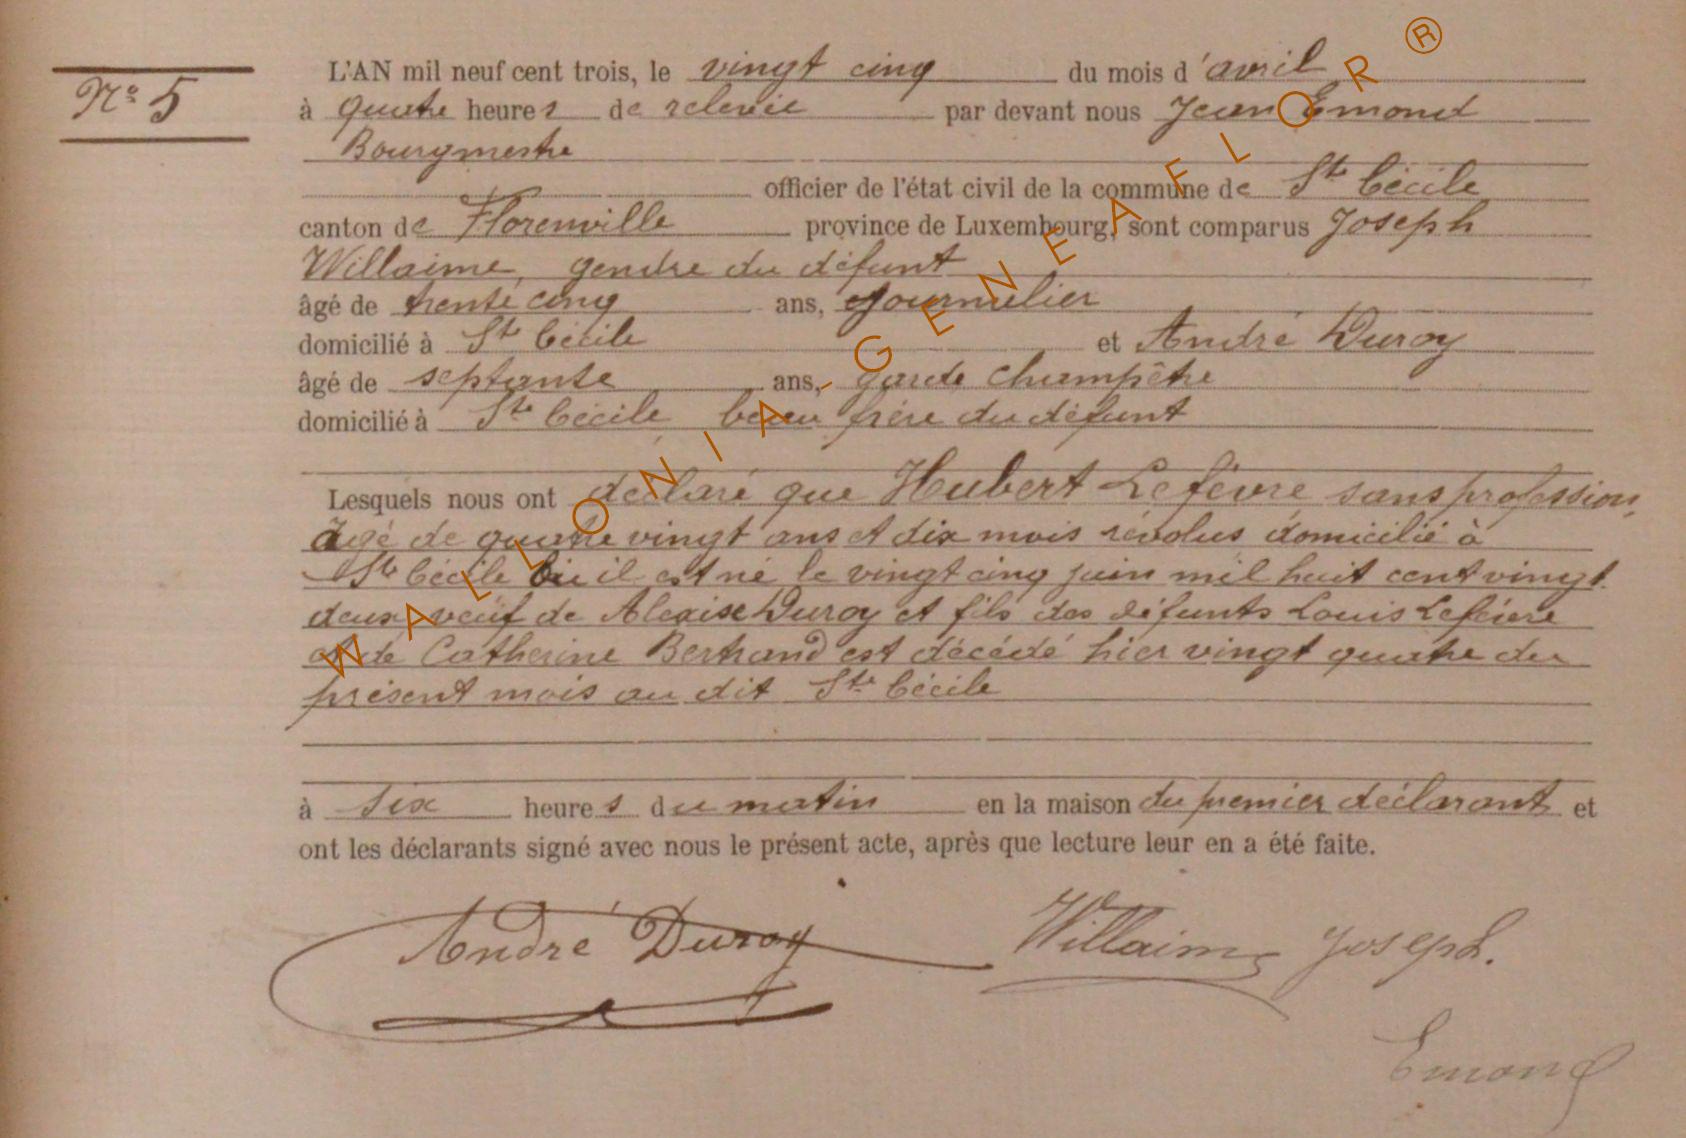 N° 5
L'AN mil neuf cent trois, le vingt cinq du mois d'avril
à quatre heures de relevée par devant nous Jean Emond
Bourgmestre
officier de l'état civil de la commune de Ste Cécile
canton de Florenville province de Luxembourg, sont comparus Joseph
Willaime, gendre du défunt
âgé de trente cinq ans, journalier
domicilié à Ste Cécile et André Duroy
âgé de septante ans, garde champêtre
domicilié à Ste Cécile beau frère du défunt
Lesquels nous ont déclaré que Hubert Lefèvre sans profession,
âgé de quatre vingt ans et dix mois révolus domicilié à
Ste Cécile où il est né le vingt cinq juin mil huit cent vingt
deux veuf de Alexise Duroy et fils des défunts Louis Lefèvre
et de Catherine Bertrand est décédé hier vingt quatre du
présent mois au dit Ste Cécile
à six heures du matin en la maison du premier déclarant et
ont les déclarants signé avec nous le présent acte, après que lecture leur en a été faite.
André Duroy Willaime Joseph.
Emond
WALLONIA-GENEAFLOR®